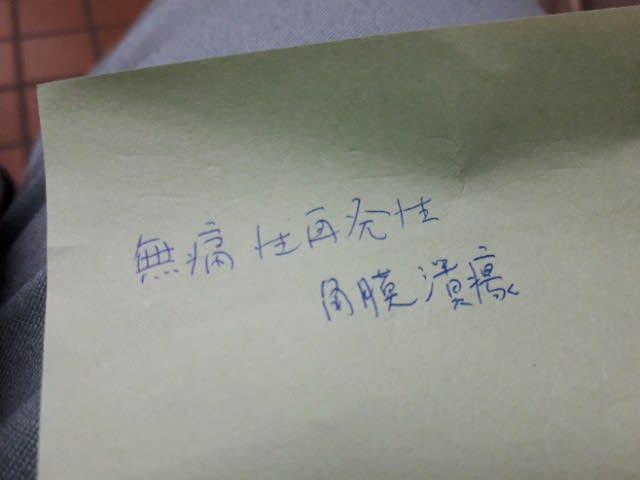 無痛性再発性
角膜潰瘍